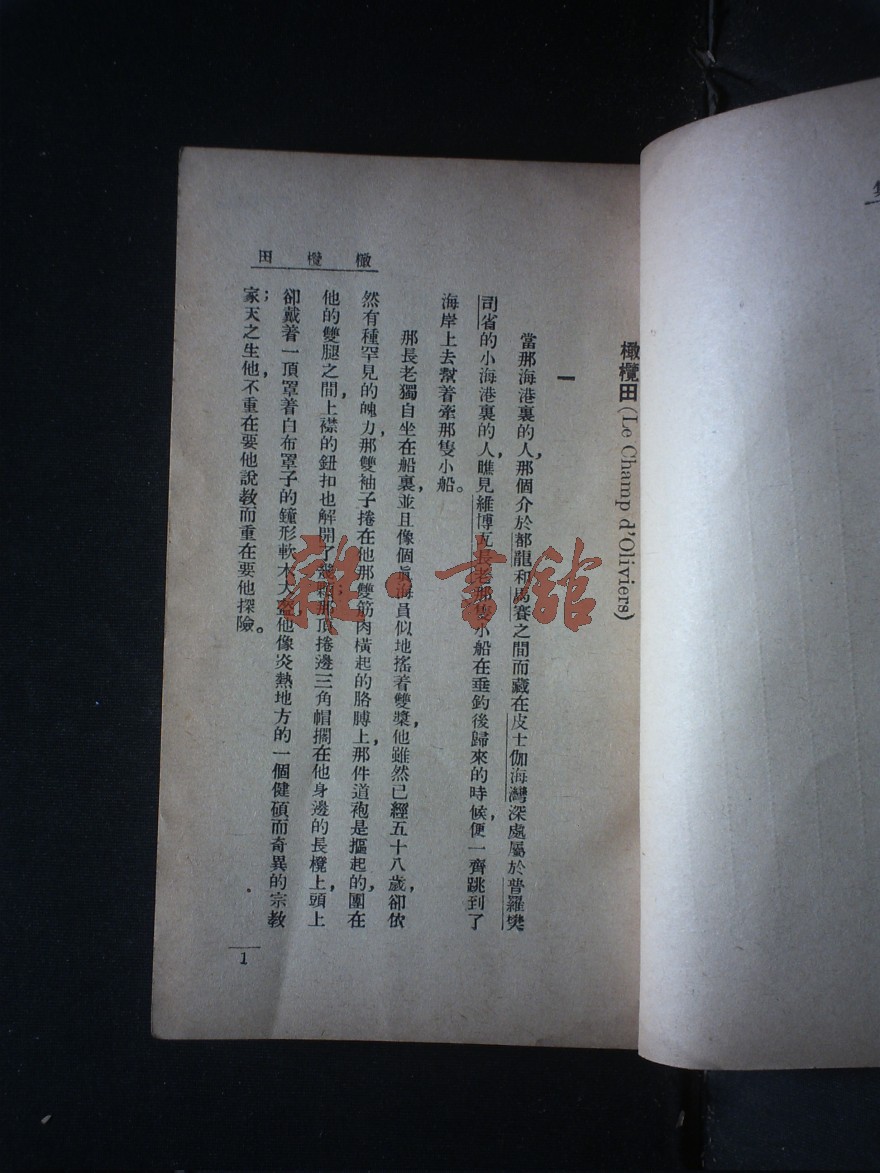 橄欖田(Le Champ d'Oliviers)
一
當那海港裏的人，那個介於都龍和馬賽之間而藏在皮士伽海灣深處屬於普羅樊
司省的小海港裏的人，瞧見維博瓦長老那隻小船在垂釣後歸來的時候，便一齊跳到了
海岸上去幫着牽那隻小船。
那長老獨自坐在船裏，並且像個眞海員似地搖着雙槳，他雖然已經五十八歲，卻依
然有種罕見的魄力，那雙袖子捲在他那雙筋肉橫起的胳膊上，那件道袍是摳起的，團在
他的雙腿之間，上襟的鈕扣也解開了幾顆；那頂捲邊三角帽擱在他身邊的長櫈上，頭上
卻戴着一頂罩着白布罩子的鐘形軟木大盔，他像炎熱地方的一個健碩而奇異的宗教
家；天之生他，不重在要他說教而重在要他探險。
橄欖田
1
雜·書館